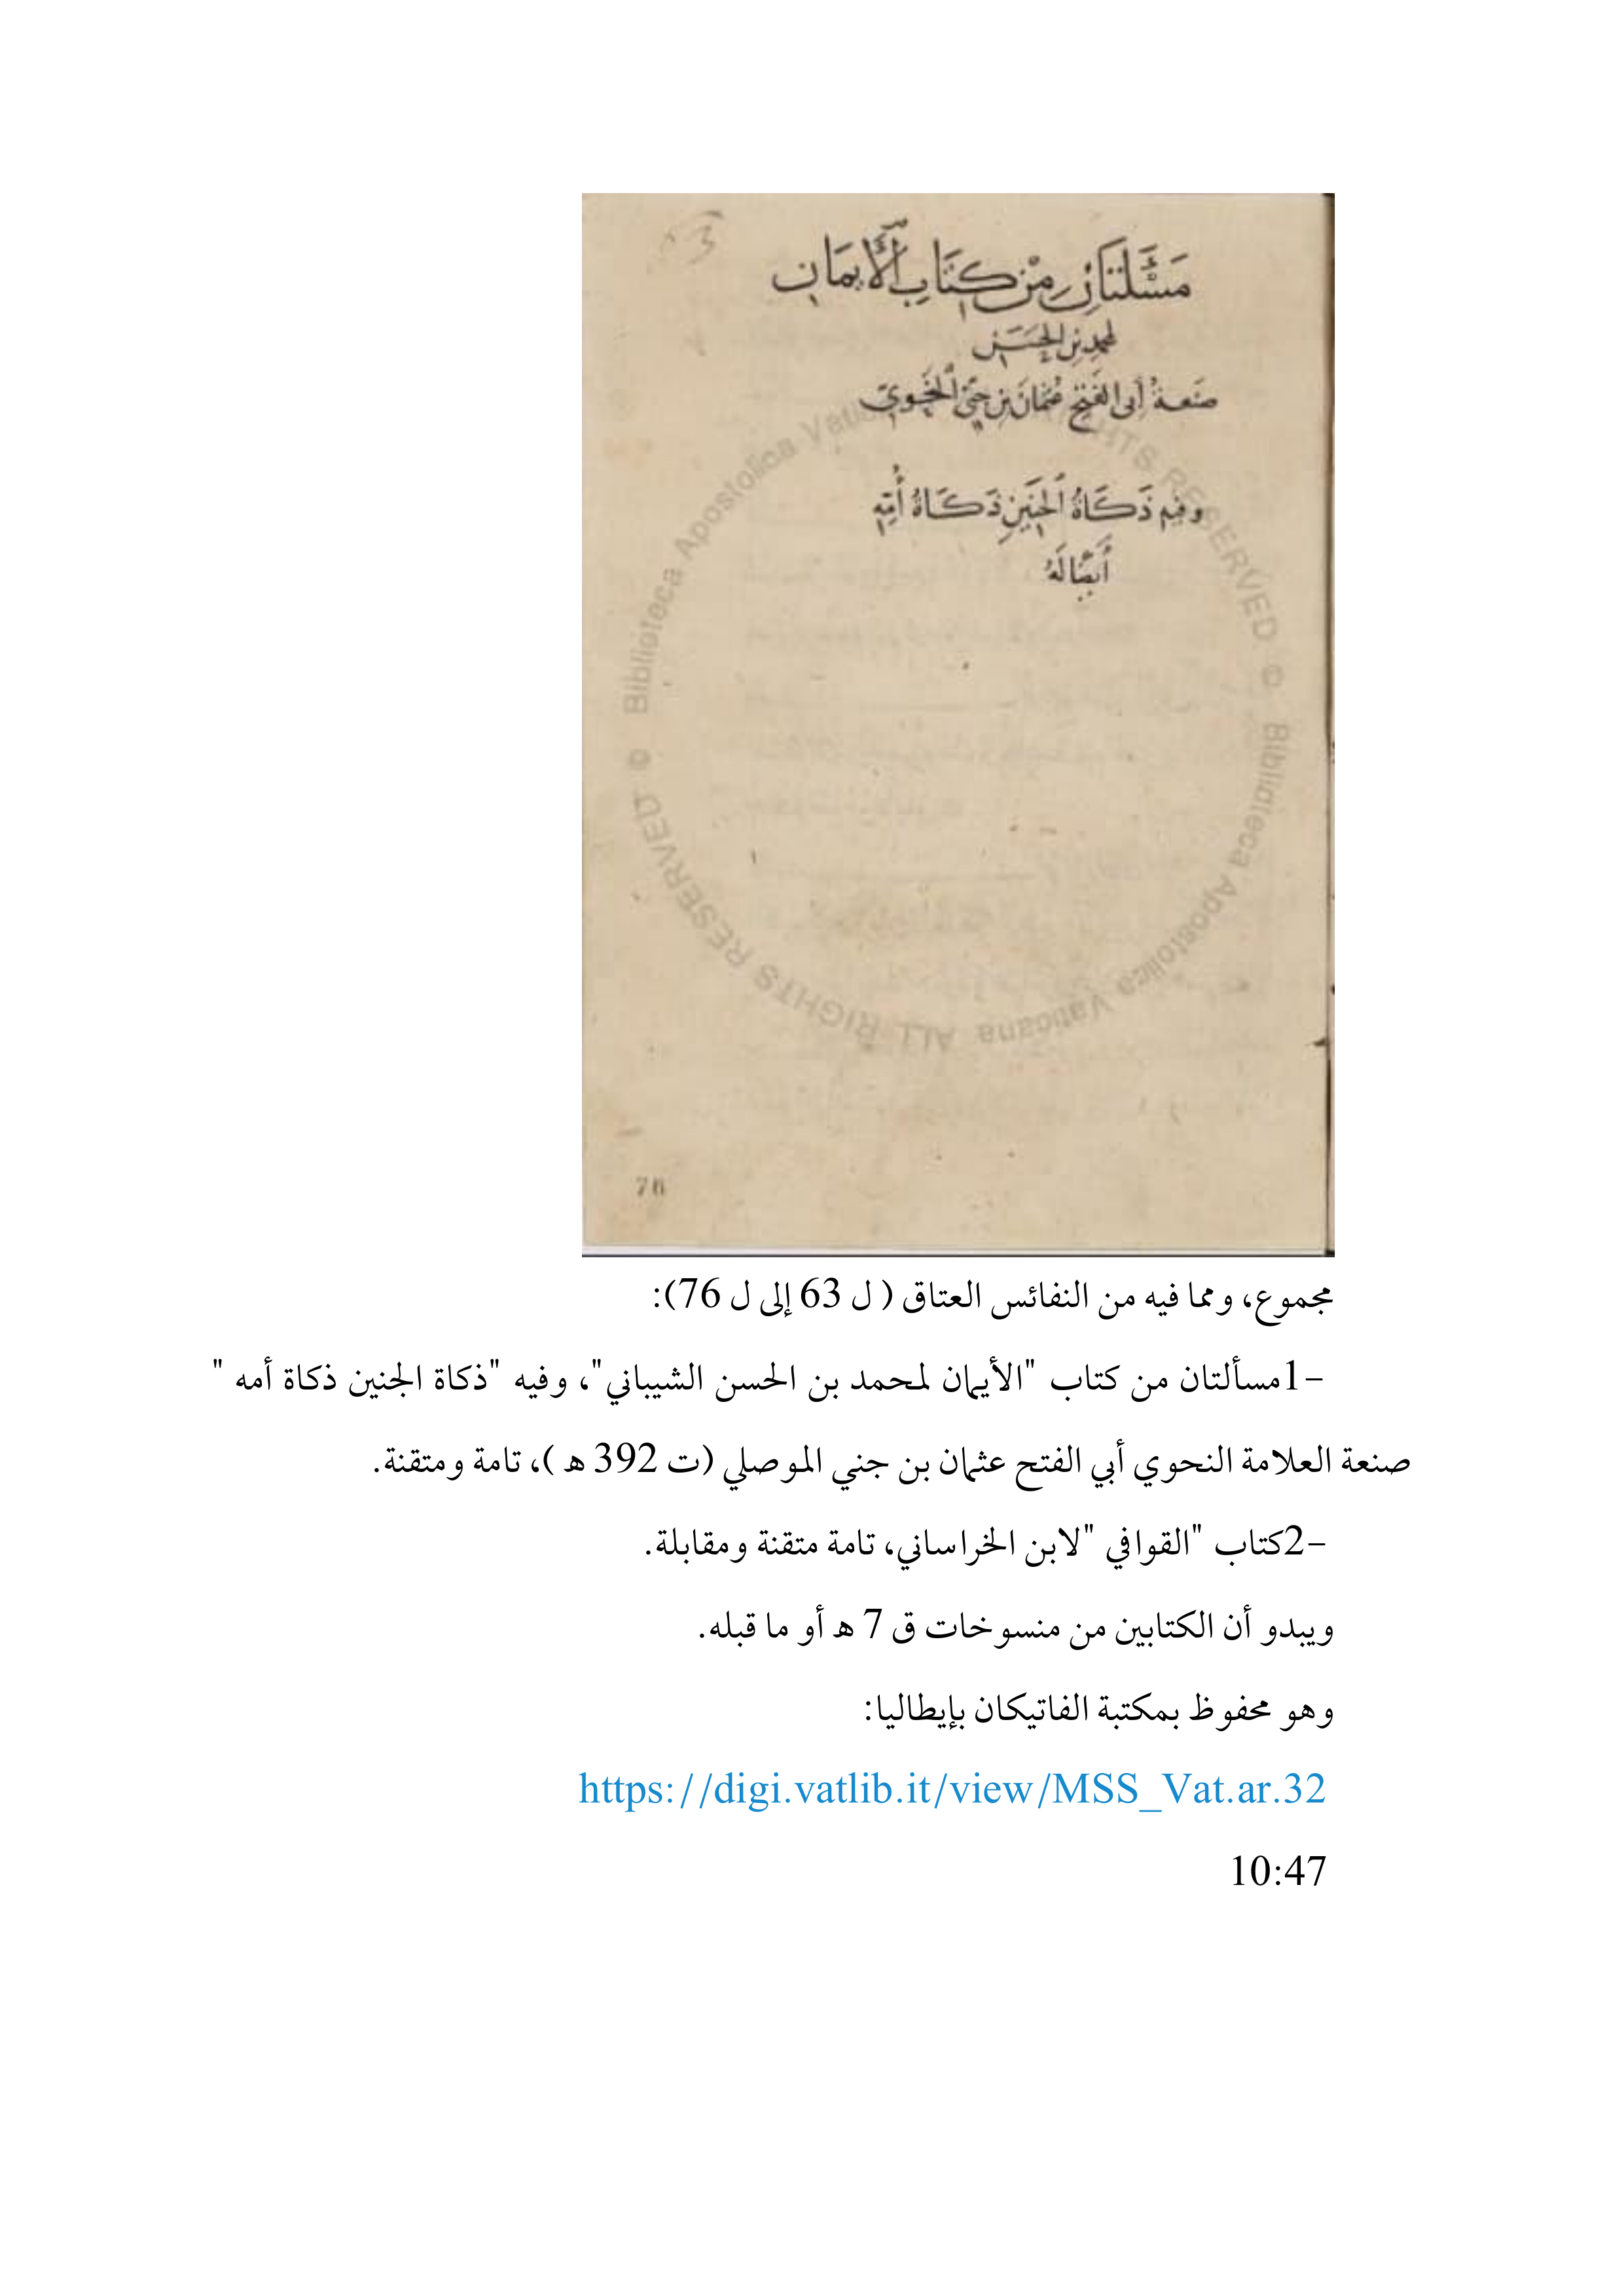 مَسْئَلَتَانِ مِنْ كِتَابِ الْأَيْمَان
لمحمد بن الحسن
صنعة أبي الفتح عثمان بن جني النحوي
وفيه ذَكَاةُ الجَنِينِ ذَكَاةُ أُمِّهِ
أَيضًا لَهُ
© Biblioteca Apostolica Vaticana ALL RIGHTS RESERVED © Biblioteca Apostolica Vaticana ALL RIGHTS RESERVED
76
مجموع، ومما فيه من النفائس العتاق ( ل 63 إلى ل 76):
-1مسألتان من كتاب "الأيمان لمحمد بن الحسن الشيباني"، وفيه "ذكاة الجنين ذكاة أمه "
صنعة العلامة النحوي أبي الفتح عثمان بن جني الموصلي (ت 392 ه )، تامة ومتقنة.
-2كتاب "القوافي "لابن الخراساني، تامة متقنة ومقابلة.
ويبدو أن الكتابين من منسوخات ق 7 ه أو ما قبله.
وهو محفوظ بمكتبة الفاتيكان بإيطاليا:
https://digi.vatlib.it/view/MSS_Vat.ar.32
10:47